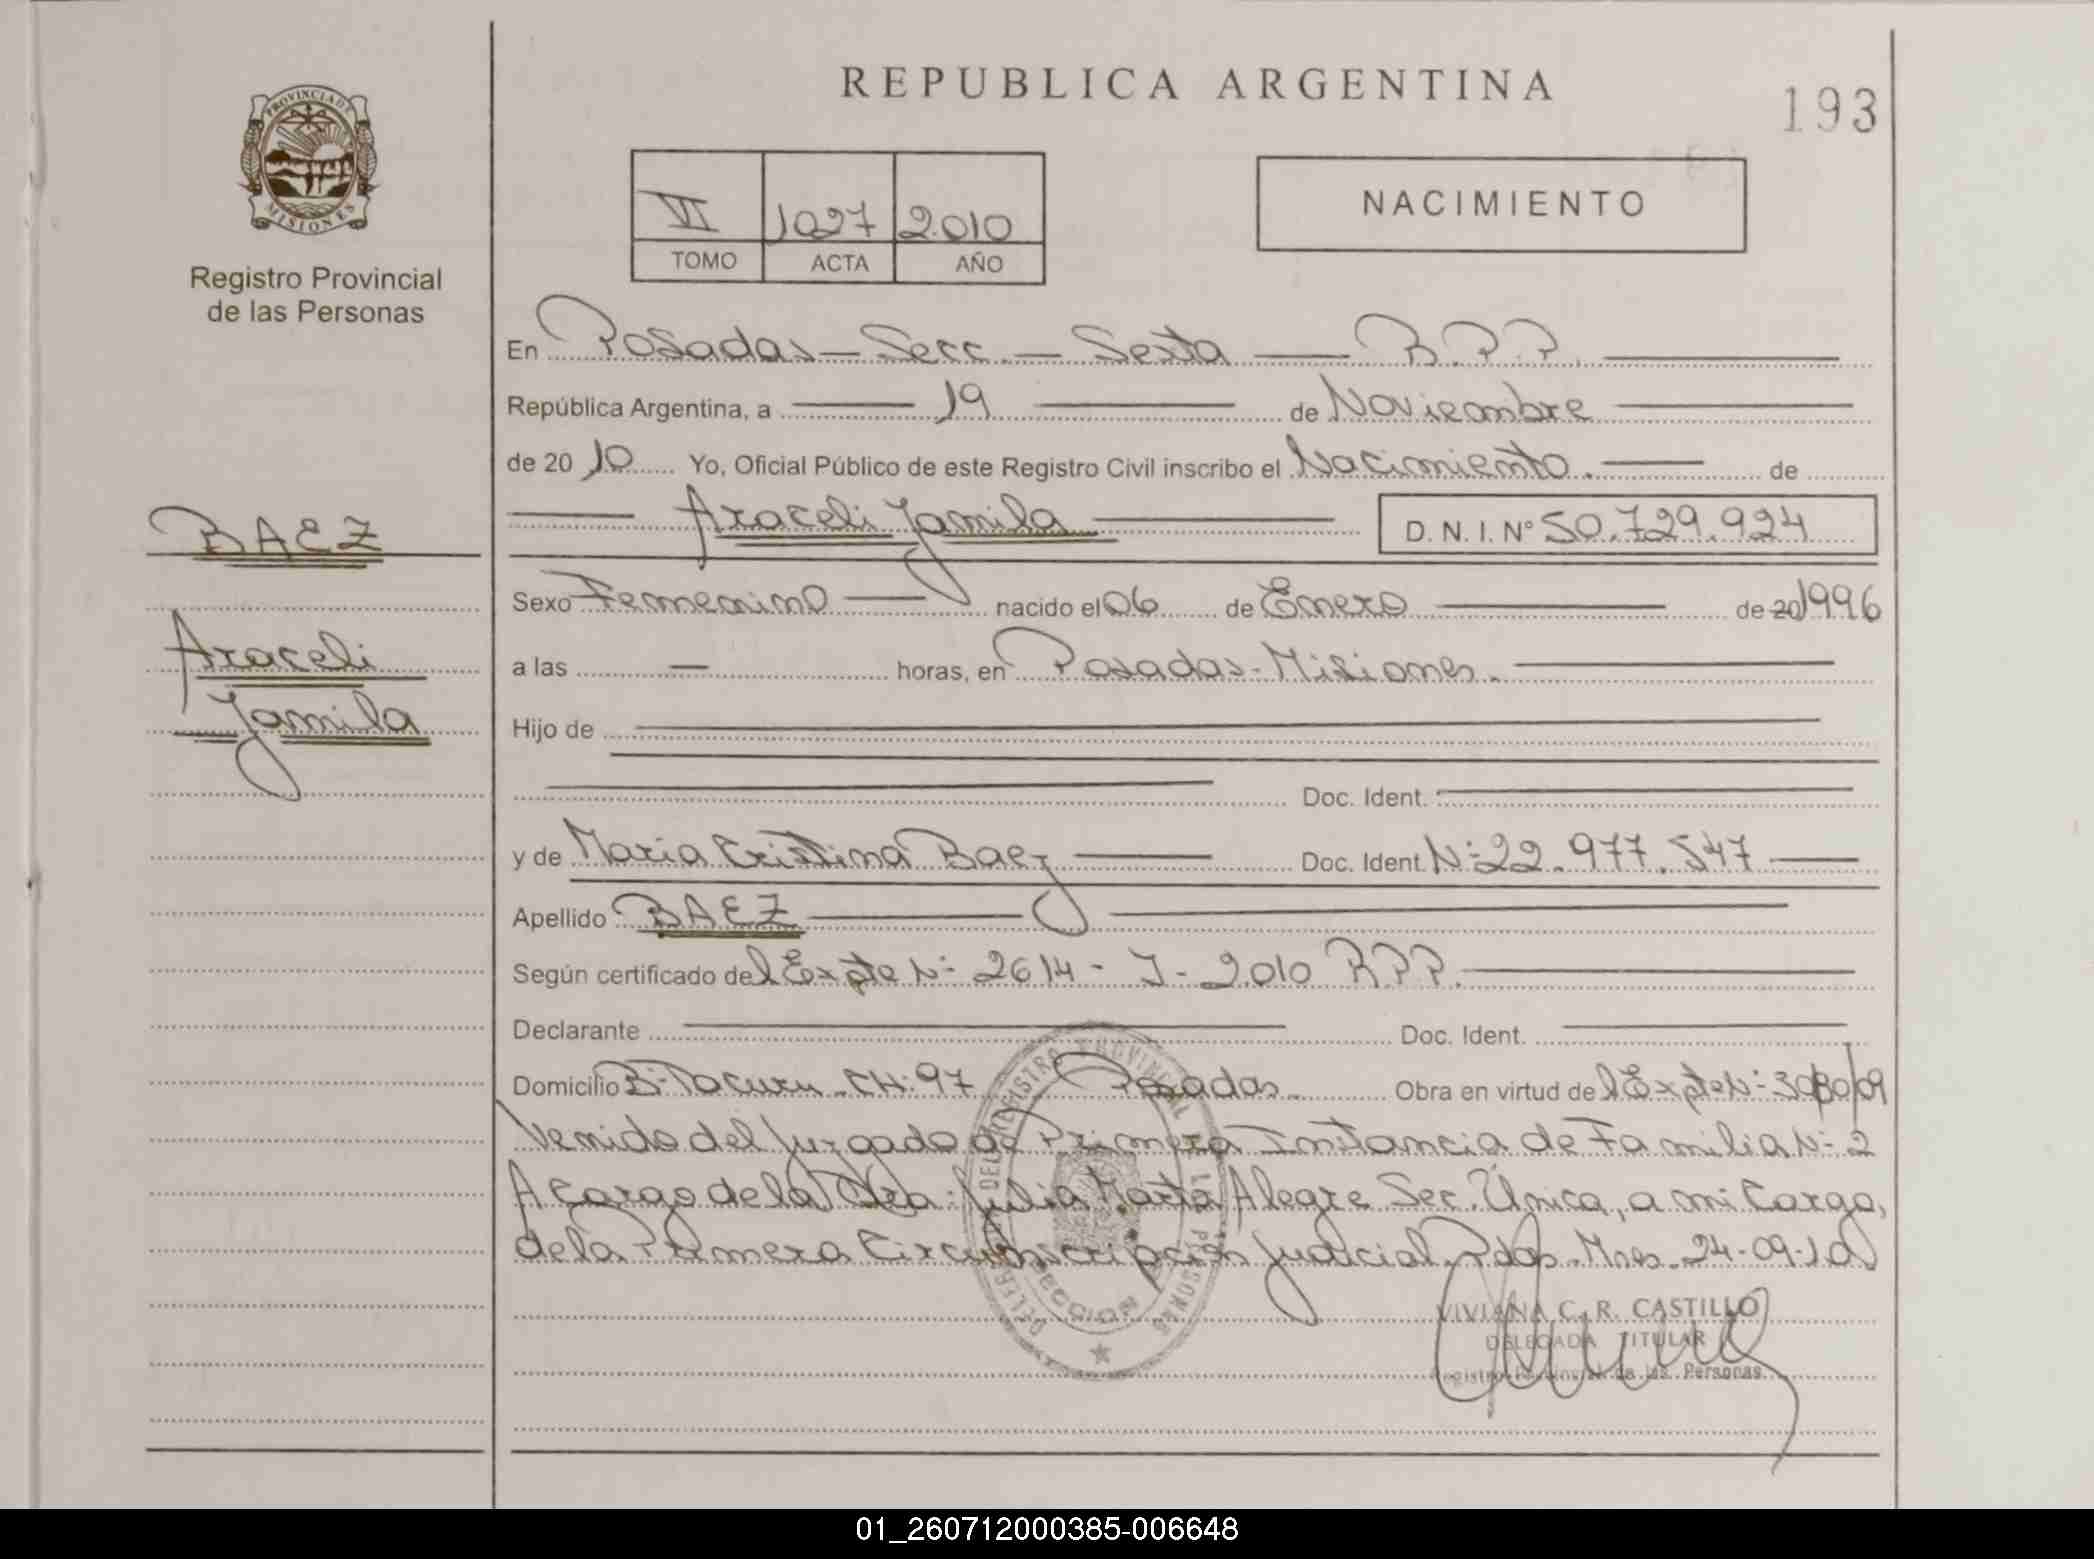 REPUBLICA ARGENTINA
193
PROVINCIA DE
MISIONES
Registro Provincial
de las Personas
VI 1027 2.010
TOMO ACTA AÑO
NACIMIENTO
En Posadas - Secc. - Sexta - R.P.P.
República Argentina, a 19 de Noviembre
de 2010 Yo, Oficial Público de este Registro Civil inscribo el Nacimiento. de
Araceli Jamila D. N. I. Nº 50.729.924
BAEZ
Araceli
Jamila
Sexo Femenino nacido el 06 de Enero de 20 1996
a las — horas, en Posadas - Misiones.
Hijo de
Doc. Ident.
y de Maria Cristina Baez Doc. Ident. Nº 22.977.547
Apellido BAEZ
Según certificado del Expte Nº 2614 - J - 2.010 RPP.
Declarante Doc. Ident.
Domicilio Bº Tacuru. CH: 97 Posadas. Obra en virtud del Expte Nº 3080/09
Venido del Juzgado de Primera Instancia de Familia Nº 2
A cargo de la Dra. Julia Marta Alegre Sec. Única, a mi Cargo,
de la Primera Circunscripción Judicial. Pdas. Mnes. 24-09-10
VIVIANA C. R. CASTILLO
DELEGADA TITULAR
Registro Provincial de las Personas
01_260712000385-006648